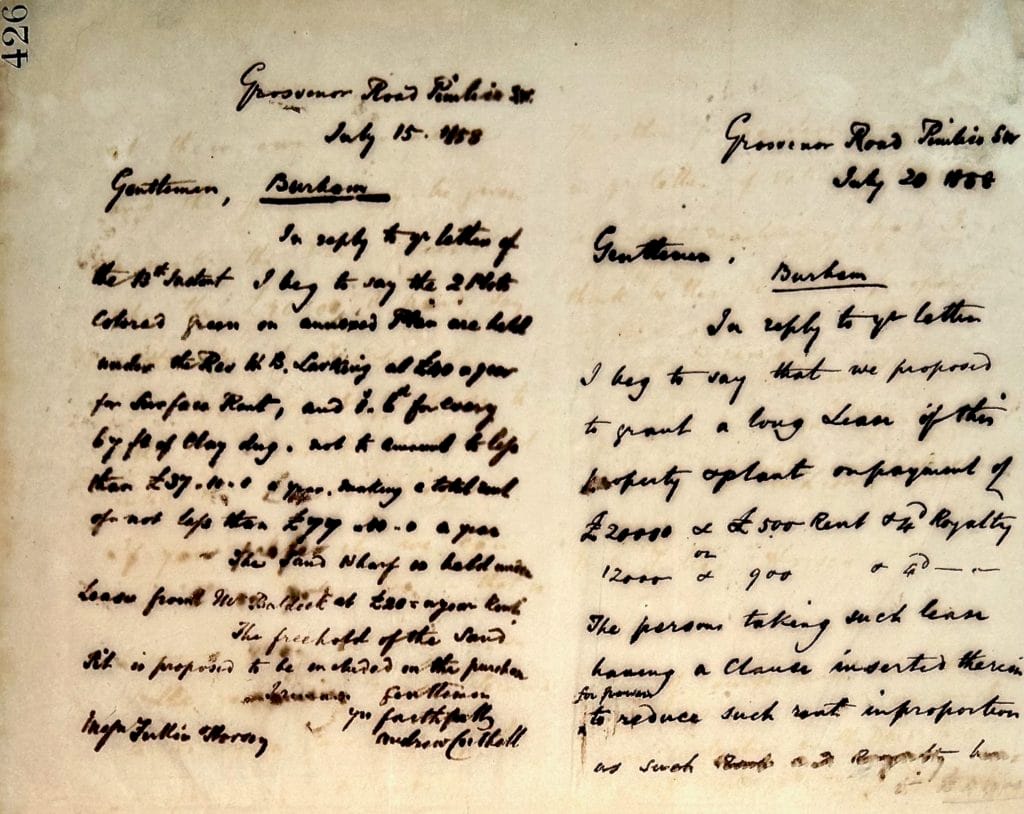 426
Grosvenor Road Pimlico SW.
July 15. 1858
Gentlemen, Burham
In reply to yr letter of
the 13th Instant I beg to say the 2 Plots
Colored green on annexed Plan are held
under the Rev W. B. Larking at £40 a year
for Surface Rent, and 6d for every
67 ft of Clay dug. not to amount to less
than £37.10.0 a year. making a total rent
of not less than £77.10.0 a year
The Sand Wharf is held under
Lease from Mr at £20 = a year Rent
The freehold of the Sand
Pit is proposed to be included in the purchase
Gentlemen
yrs faithfully
Andrew Cuthell
Messrs Fuller Horsey
Grosvenor Road Pimlico SW
July 20 1858
Gentlemen,
Burham
In reply to yr letter
I beg to say that we proposed
to grant a long Lease of this
property & plant on payment of
£20000 & £500 Rent & 4d Royalty
or
12000 & 900 & 4d — "
The persons taking such lease
having a Clause inserted therein
for power
to reduce such rent in proportion
as such and Royalty